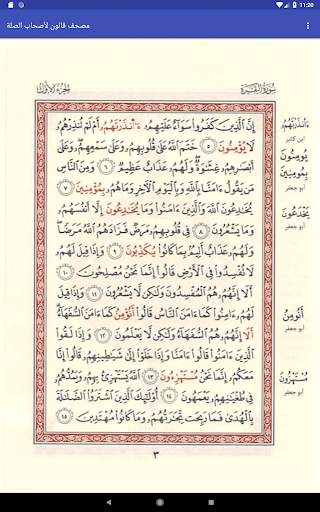 11:20
مصحف قالون لأصحاب الصلة
سُورَةُ البَقَرَةِ
الجُزْءُ الأَوَّلُ
إِنَّ الَّذِينَ كَفَرُوا سَوَآءٌ عَلَيْهِمُۥ ءَآنذَرْتَهُمُۥ أَمْ لَمْ تُنذِرْهُمُۥ
لَا يُومِنُونَ ٥ خَتَمَ اللَّهُ عَلَىٰ قُلُوبِهِمُۥ وَعَلَىٰ سَمْعِهِمُۥ وَعَلَىٰ
أَبْصَٰرِهِمُۥ غِشَٰوَةٌ وَلَهُمُۥ عَذَابٌ عَظِيمٌ ٦ وَمِنَ النَّاسِ
مَن يَقُولُ ءَامَنَّا بِاللَّهِ وَبِالْيَوْمِ الْآخِرِ وَمَا هُمُۥ بِمُومِنِينَ ٧
يُخَٰدِعُونَ اللَّهَ وَالَّذِينَ ءَامَنُوا وَمَا يُخَٰدِعُونَ إِلَّا أَنفُسَهُمُۥ
وَمَا يَشْعُرُونَ ٨ فِي قُلُوبِهِمُۥ مَرَضٌ فَزَادَهُمُۥ اللَّهُ مَرَضًا
وَلَهُمُۥ عَذَابٌ أَلِيمٌ بِمَا كَانُوا يُكَذِّبُونَ ٩ وَإِذَا قِيلَ لَهُمُۥ
لَا تُفْسِدُوا فِي الْأَرْضِ قَالُوا إِنَّمَا نَحْنُ مُصْلِحُونَ ١٠
أَلَا إِنَّهُمُۥ هُمُ الْمُفْسِدُونَ وَلَٰكِن لَّا يَشْعُرُونَ ١١ وَإِذَا قِيلَ
لَهُمُۥ ءَامِنُوا كَمَا ءَامَنَ النَّاسُ قَالُوا أَنُومِنُ كَمَا ءَامَنَ السُّفَهَآءُ
أَلَا إِنَّهُمُۥ هُمُ السُّفَهَآءُ وَلَٰكِن لَّا يَعْلَمُونَ ١٢ وَإِذَا لَقُوا
الَّذِينَ ءَامَنُوا قَالُوا ءَامَنَّا وَإِذَا خَلَوْا إِلَىٰ شَيَٰطِينِهِمُۥ قَالُوا إِنَّا
مَعَكُمُۥ إِنَّمَا نَحْنُ مُسْتَهْزِءُونَ ١٣ اللَّهُ يَسْتَهْزِئُ بِهِمُۥ وَيَمُدُّهُمُۥ
فِي طُغْيَٰنِهِمُۥ يَعْمَهُونَ ١٤ أُولَٰئِكَ الَّذِينَ اشْتَرَوُا الضَّلَٰلَةَ
بِالْهُدَىٰ فَمَا رَبِحَت تِّجَٰرَتُهُمُۥ وَمَا كَانُوا مُهْتَدِينَ ١٥
ءَأَنذَرْتَهُمُۥ
ابن كثير
يُومِنُونَ
بِمُومِنِينَ
أبو جعفر
يَخْدَعُونَ
أبو جعفر
أَنُومِنُ
أبو جعفر
مُسْتَهْزُونَ
أبو جعفر
٣